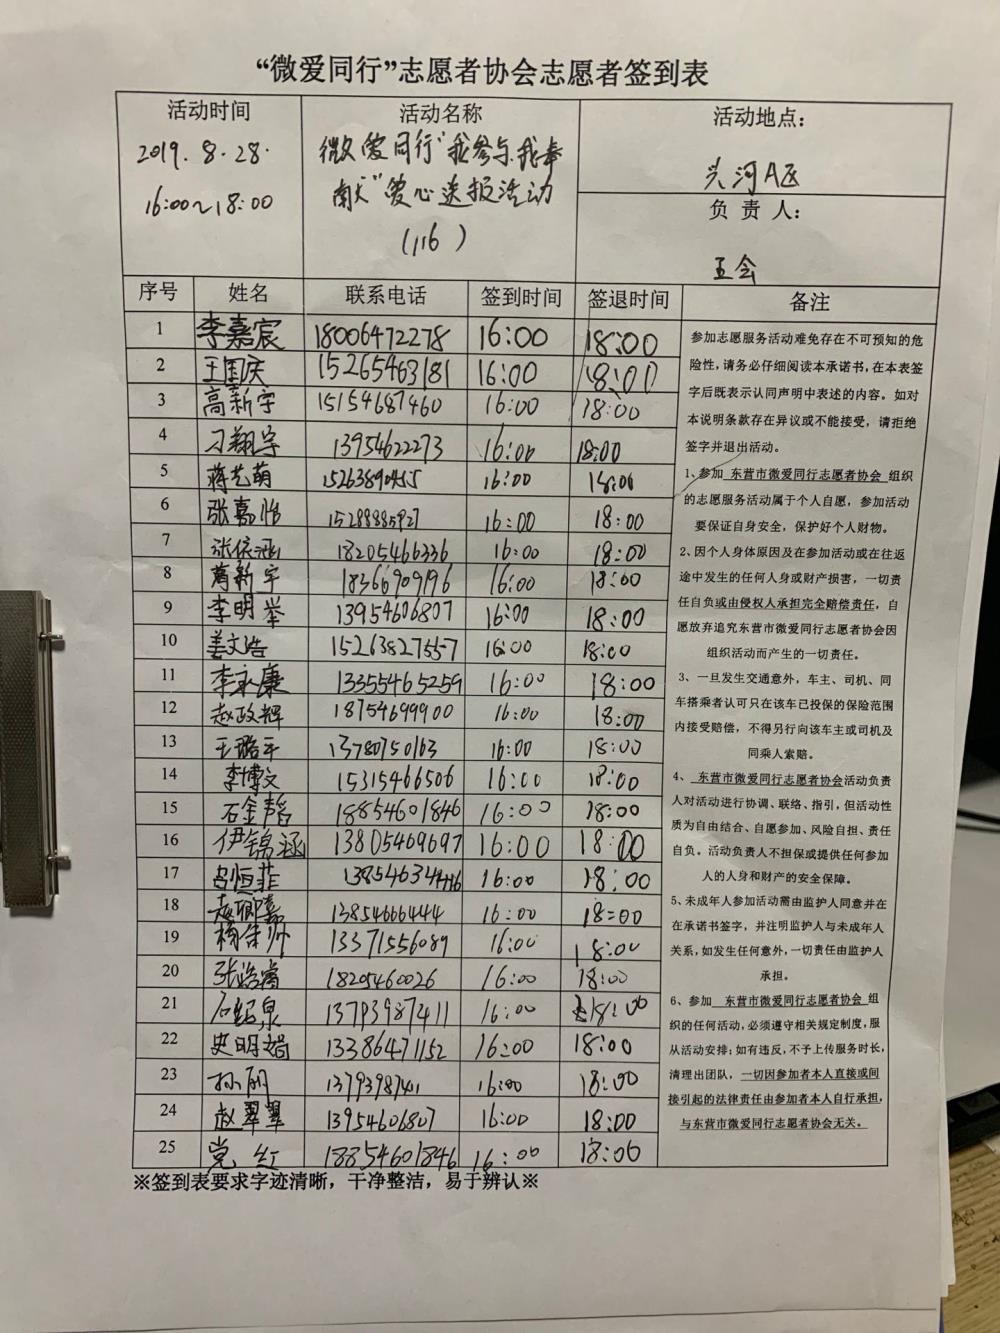 “微爱同行”志愿者协会志愿者签到表
活动时间
2019.8.28.
16:00~18:00
活动名称
微爱同行“我参与、我奉
献”爱心送报活动
(116)
活动地点:
兴河A区
负 责 人:
王会
序号 姓名 联系电话 签到时间 签退时间 备注
1 李嘉宸 18006472278 16:00 18:00
2 王国庆 15265463181 16:00 18:00
3 高新宇 15154687460 16:00 18:00
4 刁翔宇 13954622273 16:00 18:00
5 蒋艺萌 15263890455 16:00 18:00
6 张嘉怡 15288885927 16:00 18:00
7 张依涵 18205466336 16:00 18:00
8 新宇 18366909196 16:00 18:00
9 李明举 13954606807 16:00 18:00
10 姜文浩 15263827557 16:00 18:00
11 李永康 13355465259 16:00 18:00
12 赵政辉 18754699900 16:00 18:00
13 王璐平 13780750163 16:00 18:00
14 李博文 15315466506 16:00 18:00
15 石金韬 18854601846 16:00 18:00
16 伊锦涵 13805469697 16:00 18:00
17 吕恒菲 16:00 18:00
18 13854666444 16:00 18:00
19 13371556089 16:00 18:00
20 张皓睿 18205460026 16:00 18:00
21 13793987411 16:00 18:00
22 史明娟 13386471152 16:00 18:00
23 孙丽 13793987411 16:00 18:00
24 赵翠翠 13954606807 16:00 18:00
25 党红 18854601846 16:00 18:00
参加志愿服务活动难免存在不可预知的危
险性,请务必仔细阅读本承诺书,在本表签
字后既表示认同声明中表述的内容。如对
本说明条款存在异议或不能接受,请拒绝
签字并退出活动。
1、参加 东营市微爱同行志愿者协会 组织
的志愿服务活动属于个人自愿,参加活动
要保证自身安全,保护好个人财物。
2、因个人身体原因及在参加活动或在往返
途中发生的任何人身或财产损害,一切责
任自负或由侵权人承担完全赔偿责任,自
愿放弃追究东营市微爱同行志愿者协会因
组织活动而产生的一切责任。
3、一旦发生交通意外,车主、司机、同
车搭乘者认可只在该车已投保的保险范围
内接受赔偿,不得另行向该车主或司机及
同乘人索赔。
4、 东营市微爱同行志愿者协会活动负责
人对活动进行协调、联络、指引,但活动性
质为自由结合、自愿参加、风险自担、责任
自负。活动负责人不担保或提供任何参加
人的人身和财产的安全保障。
5、未成年人参加活动需由监护人同意并在
在承诺书签字,并注明监护人与未成年人
关系,如发生任何意外,一切责任由监护人
承担。
6、参加 东营市微爱同行志愿者协会 组
织的任何活动,必须遵守相关规定制度,服
从活动安排;如有违反,不予上传服务时长,
清理出团队,一切因参加者本人直接或间
接引起的法律责任由参加者本人自行承担,
与东营市微爱同行志愿者协会无关。
※签到表要求字迹清晰,干净整洁,易于辨认※